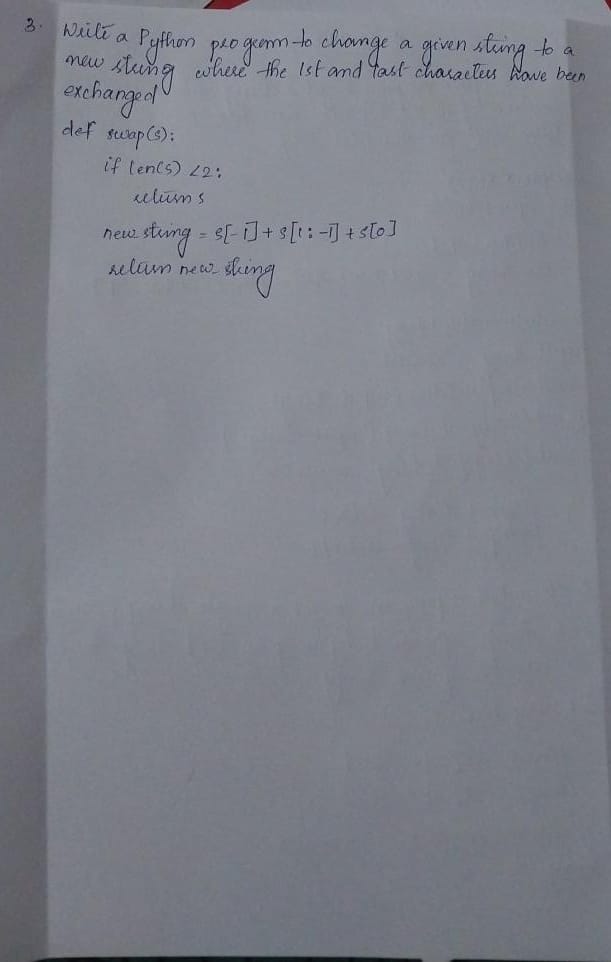 3. Write a Python program to change a given string to a
new string where the 1st and last characters have been
exchanged
def swap(s):
if len(s) <2:
return s
new string = s[-1] + s[1:-1] + s[0]
return new string